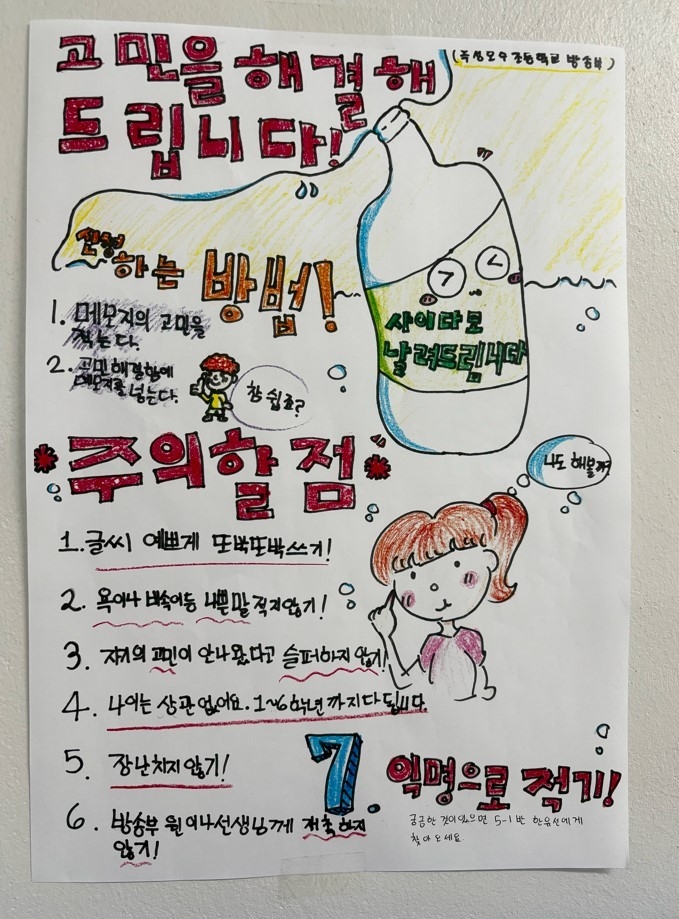 고민을 해결해
드립니다!
초등학교 방송부)
신청
하는 방법!
1. 메모지의 고민을
적는다.
2. 고민해결함에
메모지를 넣는다.
참 쉽죠?
사이다로
날려드립니다
*주의할 점*
나도 해볼까
1. 글씨 예쁘게 또박또박쓰기!
2. 욕이나 비속어등 나쁜말 적지않기!
3. 자기의 고민이 안나왔다고 슬퍼하지 않기!
4. 나이는 상관없어요. 1~6학년 까지다 됩니다.
5. 장난치지않기!
6. 방송부 원이나선생님께 재촉하지
않기!
7. 익명으로 적기!
궁금한 것이 있으면 5-1반 한윤선에게
찾아오세요.